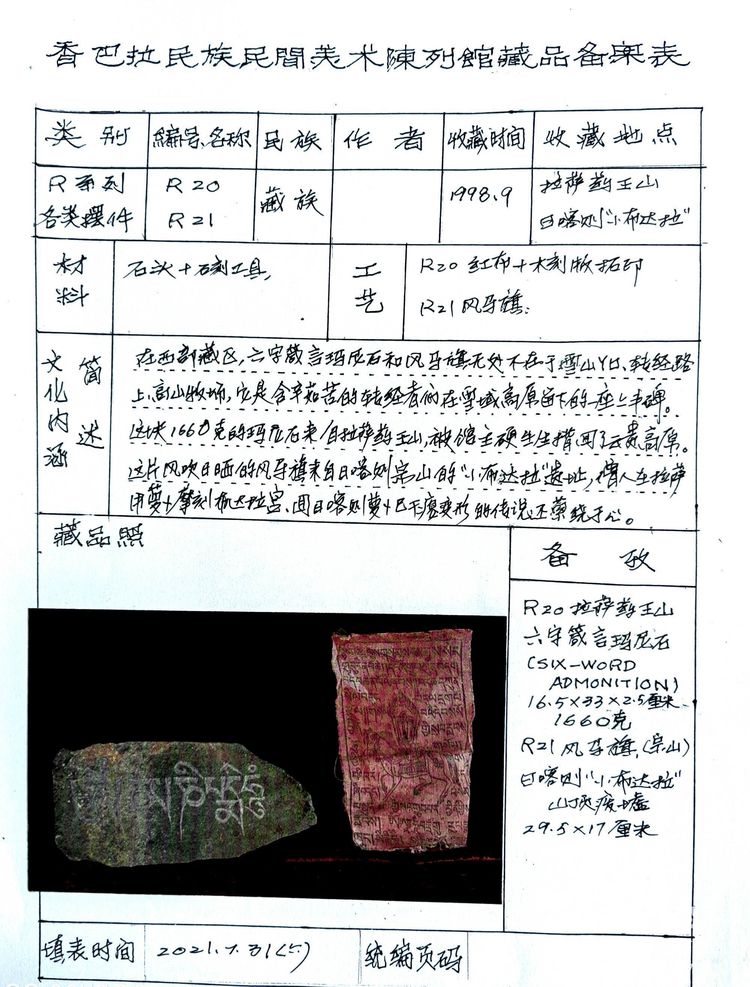 香巴拉民族民間美术陳列館藏品备案表
类别
編号名称
民族
作者
收藏时间
收藏地点
R系列
各类摆件
R20
R21
藏族
1998.9
拉萨药王山
日喀则"小布达拉"
材料
石头+石刻工具
工艺
R20 红布+木刻版拓印
R21 风马旗:
文化内涵
简述
在西部藏区,六字箴言玛尼石和风马旗无处不在于雪山丫口、转经路
上、高山牧场,它是含辛茹苦的转经者们在雪域高原留下的座座丰碑。
这块1660克的玛尼石来自拉萨药王山,被馆主硬生生揹回了云贵高原。
这片风吹日晒的风马旗来自日喀则宗山的"小布达拉"遗址,僧人在拉萨
用萝卜摩刻布达拉宫、回日喀则萝卜已干瘪变形的传说还萦绕于心。
藏品照
备考
R20 拉萨药王山
六字箴言玛尼石
(SIX-WORD
ADMONITION)
16.5×33×2.5厘米
1660克
R21 风马旗,(宗山)
日喀则"小布达拉"
山顶废墟
29.5×17厘米
填表时间
2021.7.31(六)
统编页码